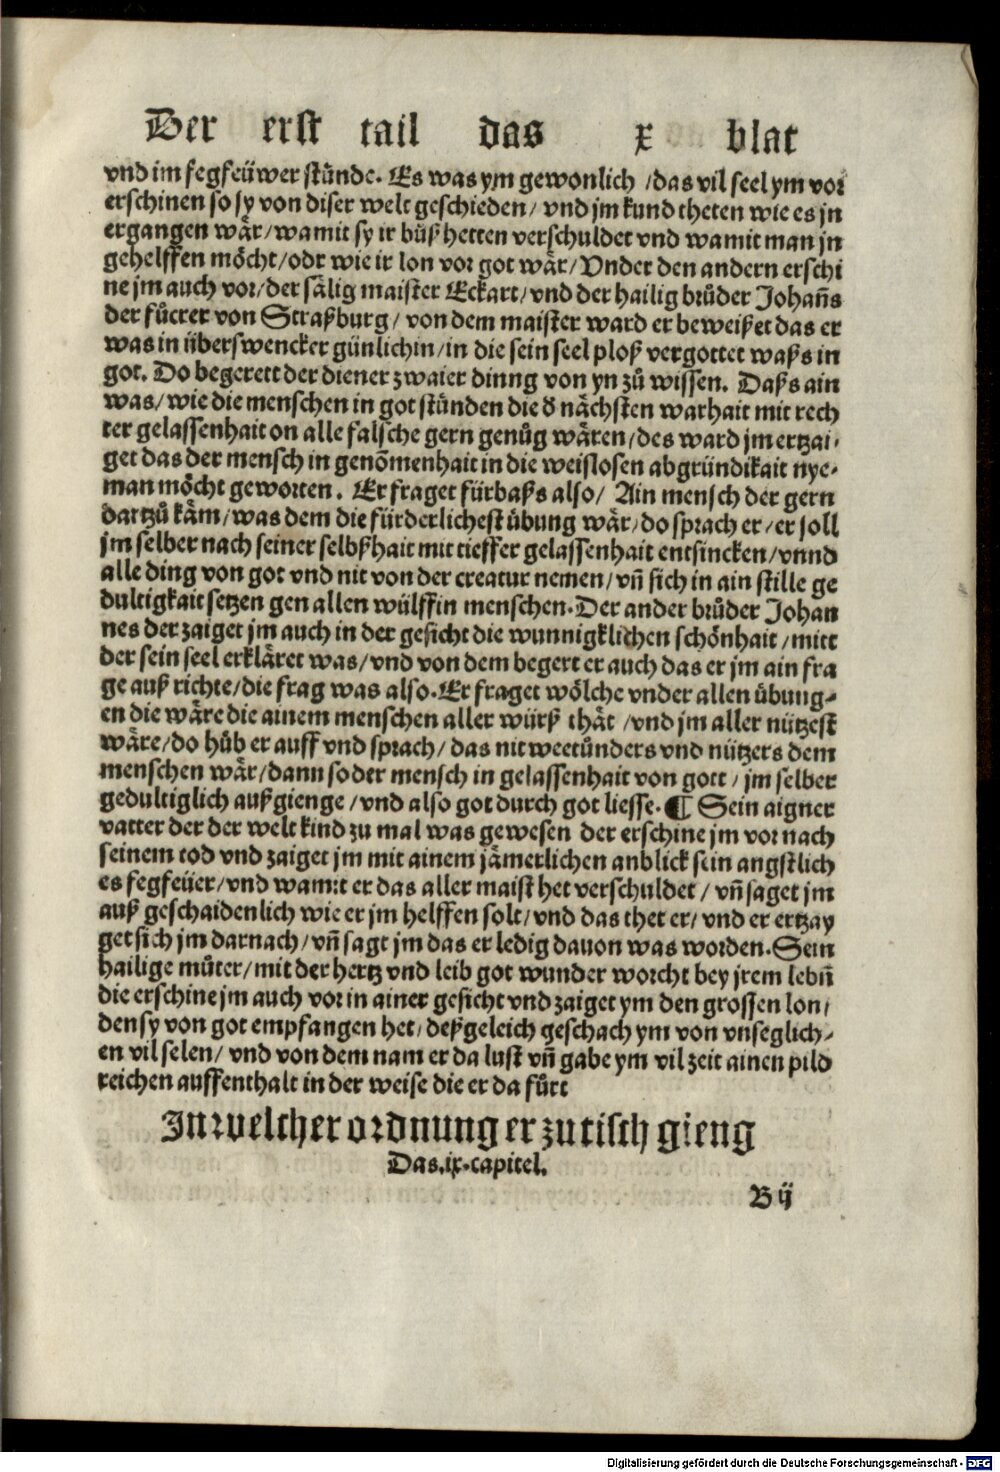 Der erst tail das x blat
vnd im fegfeüwer stünde. Es was ym gewonlich /das vil seel ym vor
erschinen so sy von diser welt geschieden/ vnd jm kund theten wie es jn
ergangen wår/wamit sy ir büß hetten verschuldet vnd wamit man jn
gehelffen möcht/odr wie ir lon vor got wår/Vnder den andern erschi
ne jm auch vor/der sålig maister Eckart/vnd der hailig brůder Johan̄s
der fůcrer von Straßburg/ von dem maister ward er beweißet das er
was in überswencker günlichin/in die sein seel ploß vergottet waßs in
got. Do begerett der diener zwaier dinng von yn zů wissen. Daßs ain
was/wie die menschen in got stünden die d nåchsten warhait mit rech
ter gelassenhait on alle falsche gern genůg wåren/des ward jm ertzai-
get das der mensch in genōmenhait in die weislosen abgründikait nye-
man möcht geworten. Er fraget fürbaßs also/ Ain mensch der gern
dartzů kåm/was dem die fürderlichest übung wår/do sprach er/er soll
jm selber nach seiner selbßhait mit tieffer gelassenhait entsincken/vnnd
alle ding von got vnd nit von der creatur nemen/vn̄ sich in ain stille ge
dultigkait setzen gen allen wülffin menschen.Der ander brůder Johan
nes der zaiget jm auch in der gesicht die wunnigklichen schönhait/mitt
der sein seel erklåret was/vnd von dem begert er auch das er jm ain fra
ge auß richte/die frag was also.Er fraget wölche vnder allen übung-
en die wåre die ainem menschen aller würß thåt /vnd jm aller nützest
wåre/do hůb er auff vnd sprach/das nit weetünders vnd nützers dem
menschen wår/dann so der mensch in gelassenhait von gott/jm selber
gedultiglich außgienge/vnd also got durch got liesse.¶ Sein aigner
vatter der der welt kind zu mal was gewesen der erschine jm vor nach
seinem tod vnd zaiget jm mit ainem jåmerlichen anblick sein angstlich
es fegfeüer/vnd wamit er das aller maist het verschuldet/vn̄ saget jm
auß geschaidenlich wie er jm helffen solt/vnd das thet er/vnd er ertzay
get sich jm darnach/vn̄ sagt jm das er ledig dauon was worden.Sein
hailige můter/mit der hertz vnd leib got wunder worcht bey jrem lebn̄
die erschine jm auch vor in ainer gesicht vnd zaiget ym den grossen lon/
den sy von got empfangen het/deßgeleich geschach ym von vnseglich-
en vil selen/ vnd von dem nam er da lust vn̄ gabe ym vil zeit ainen pild
reichen auffenthalt in der weise die er da fůrt
In welcher ordnung er zu tisch gieng
Das.ix.capitel.
B ij
Digitalisierung gefördert durch die Deutsche Forschungsgemeinschaft - DFG